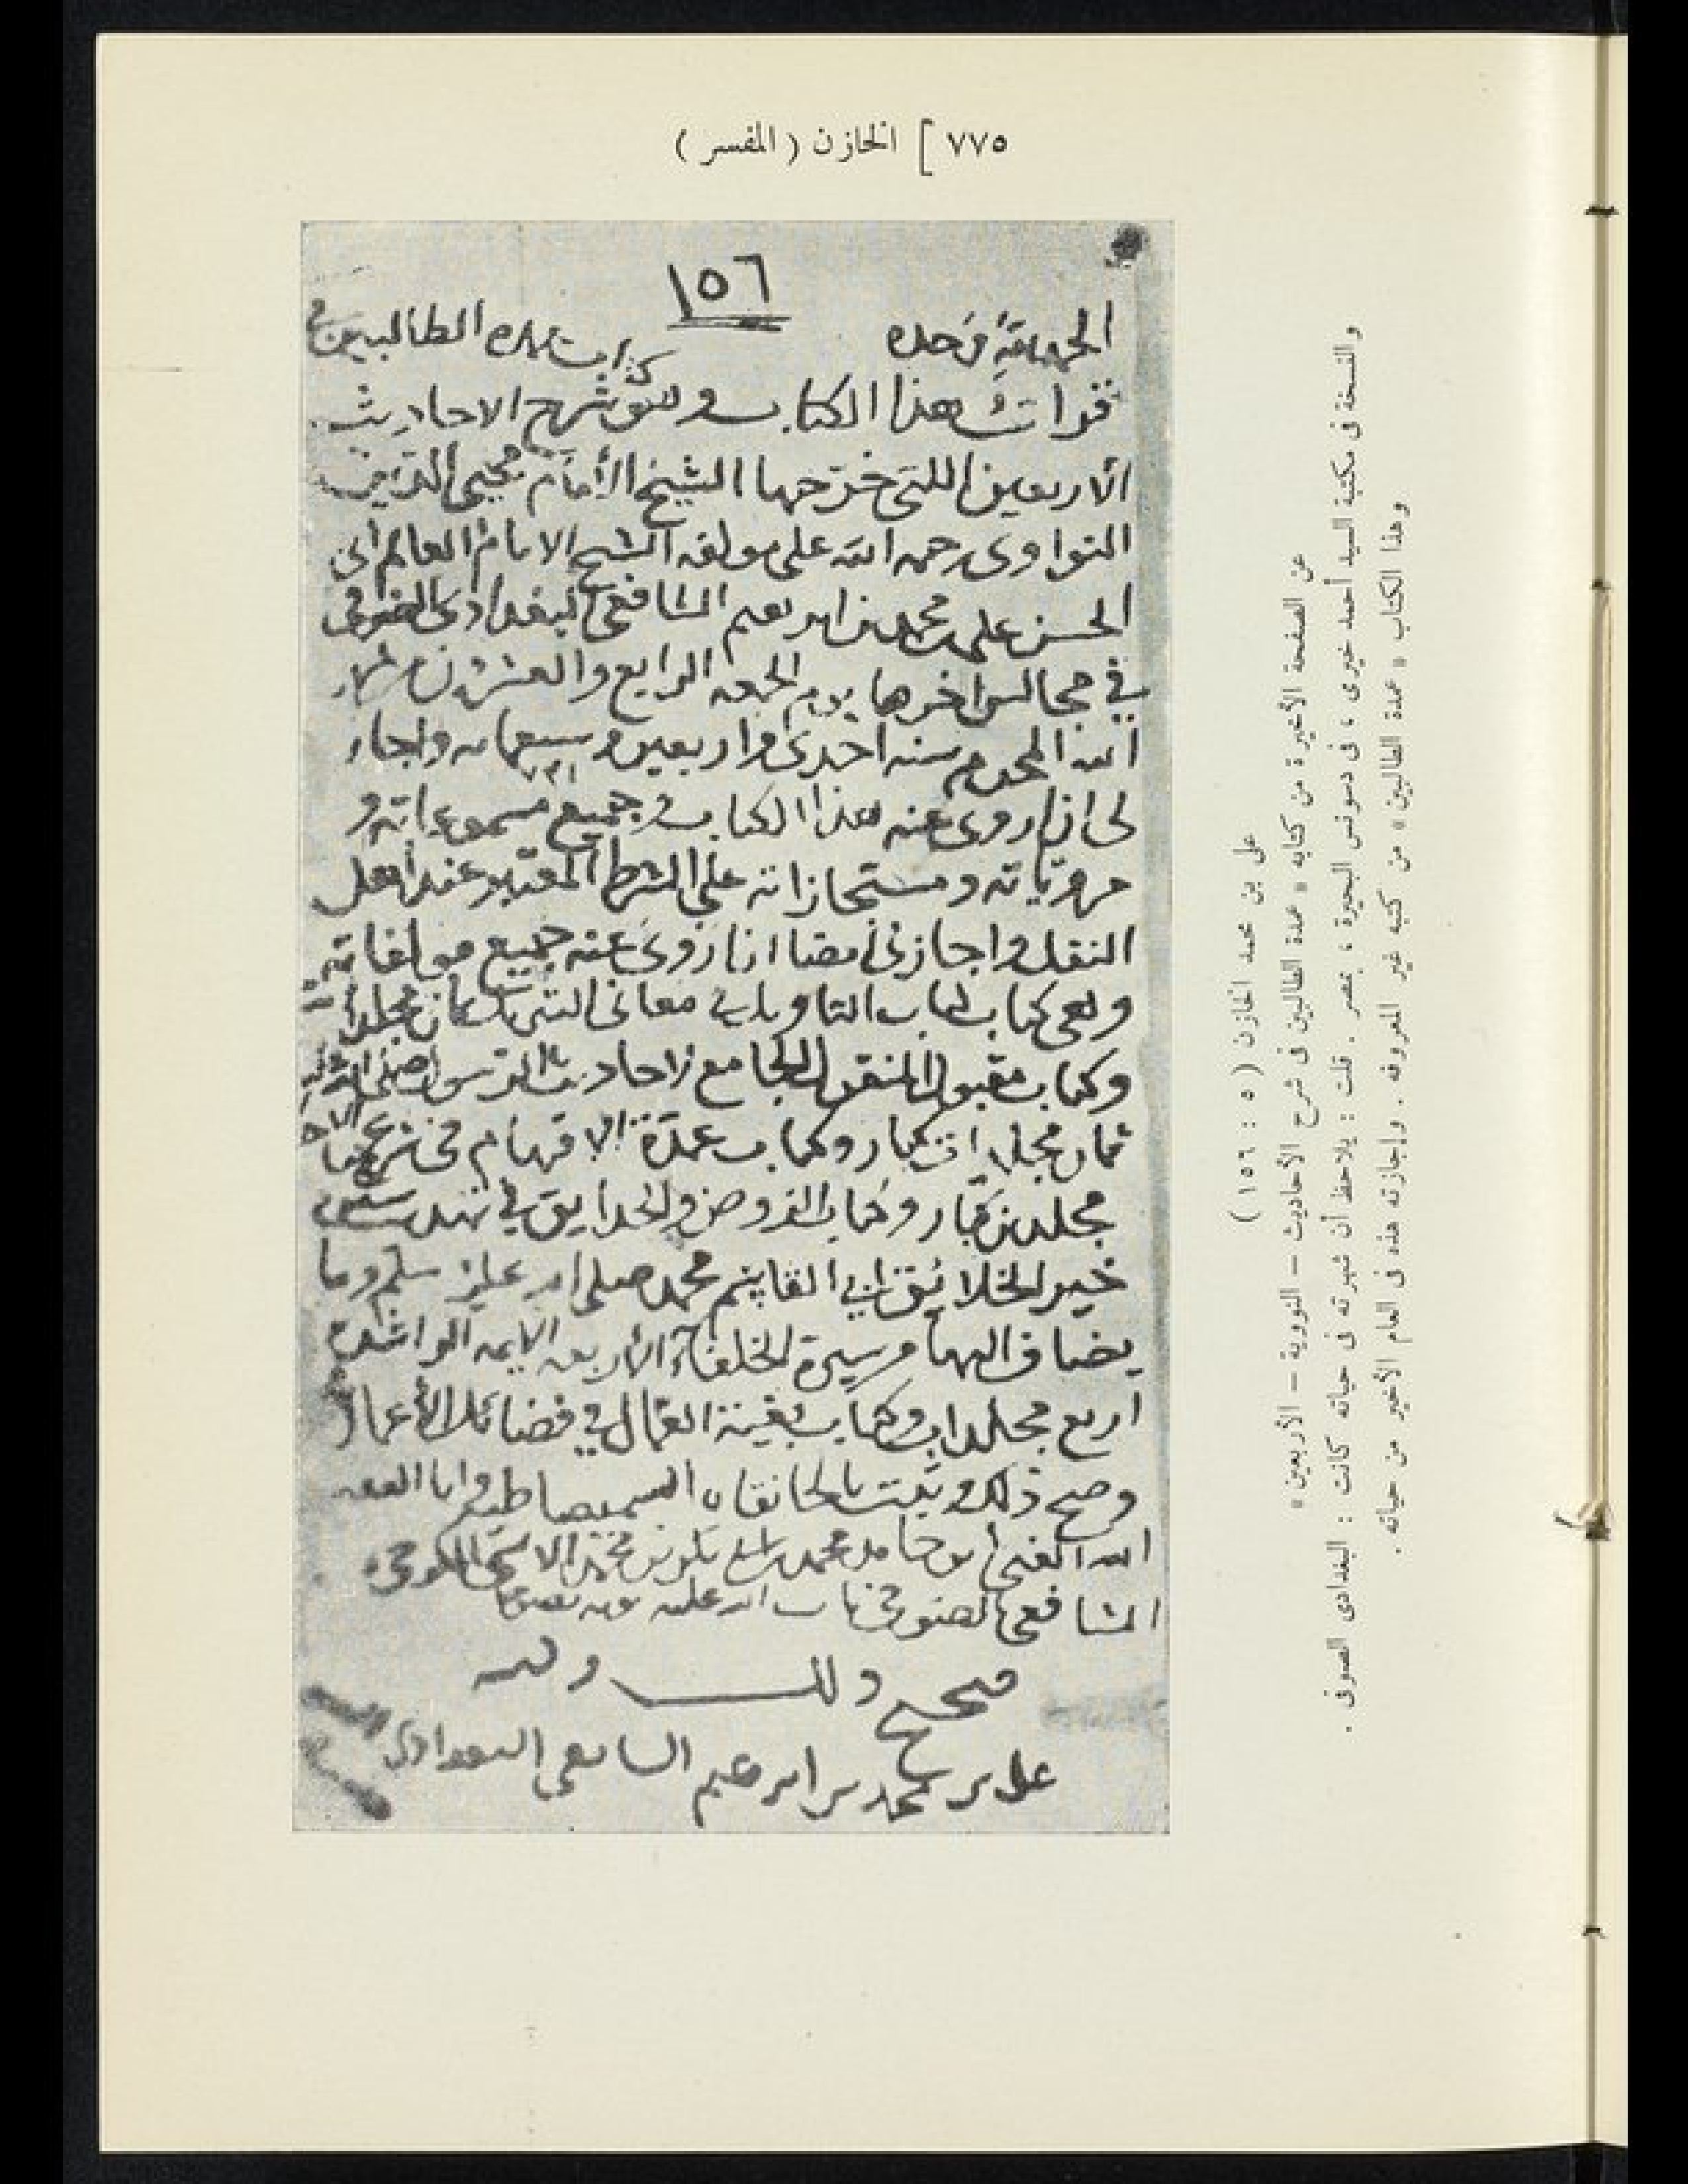 ٧٧٥ ] الخازن ( المفسر )
١٥٦
الحمد لله وحده
كتاب عمدة الطالبين في
قرات هذا الكتاب وهو شرح الاحاديث
الأربعين اللتي خرّجها الشيخ الأمام محيي الدين
النواوى رحمه الله على مولفه الشيخ الامام العالم ابى
الحسن على بن محمد بن ابرهيم الشافعى البغدادى الصوفى
في مجالس اخرها يوم الجمعه الرابع والعشرين من شهر
الله المحرم سنه احدى واربعين وسبعمايه واجاز
٧٤١
لى ان اروى عنه هذا الكتاب وجميع مسموعاته و
مروياته ومستجازاته على الشرط المعتبر عند أهل
النقل واجاز لى ايضا ان اروى عنه جميع مولفاته
وهى كتاب لباب التاويل في معانى التنزيل ثمان مجلدات
وكتاب مقبول المنقول الجامع لاحاديث الرسول صلى الله عليه
ثمان مجلدات كبار وكتاب عمدة الافهام فى شرح الاحكام
مجلدين كبار وكتاب الروض والحدايق في تهذيب سيرة
خير الخلائق ابي القاسم محمد صلى الله عليه وسلم وما
يضاف اليها من سيرة الخلفاء الأربعه الايمه الراشدين
اربع مجلدات وكتاب بغية العمال في فضائل الأعمال
وصح ذلك وثبت بالخانقاه السميصاطيه وانا العبد
الشافعى الصوفى تاب الله عليه
صحيح ذلك وكتبه
على بن محمد بن ابرهيم الشافعى البغدادى
على بن محمد الخازن ( ٥ : ١٥٦ )
عن الصفحة الأخيرة من كتابه « عمدة الطالبين فى شرح الأحاديث – النووية – الأربعين »
والنسخة فى مكتبة السيد أحمد خيرى ، فى دسونس البحيرة ، بمصر . قلت : يلاحظ أن شهرته فى حياته كانت : البغدادى الصوفى .
وهذا الكتاب « عمدة الطالبين » من كتبه غير المعروفه . وإجازته هذه فى العام الأخير من حياته .